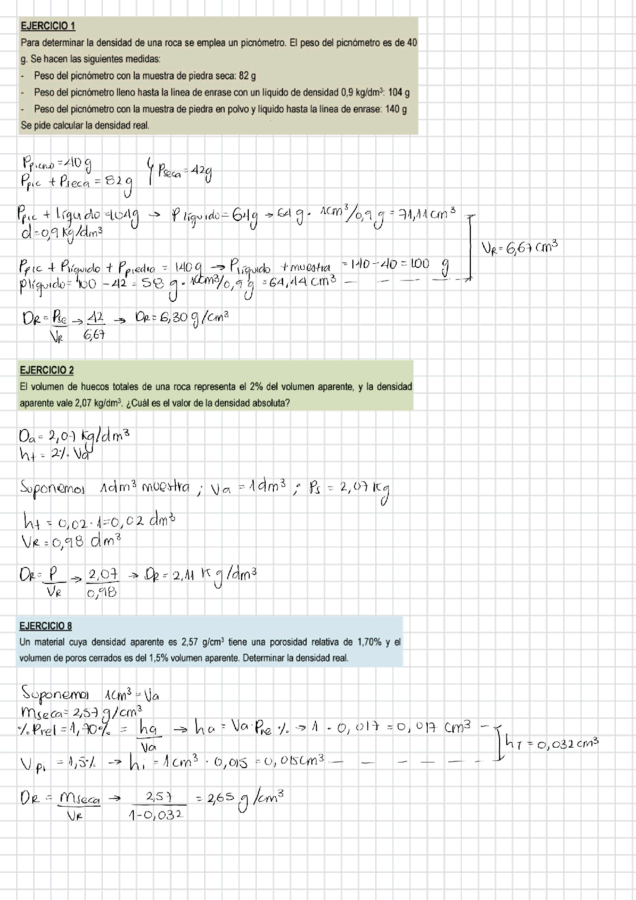 EJERCICIO 1
Para determinar la densidad de una roca se emplea un picnómetro. El peso del picnómetro es de 40
g. Se hacen las siguientes medidas:
- Peso del picnómetro con la muestra de piedra seca: 82 g
- Peso del picnómetro lleno hasta la línea de enrase con un líquido de densidad 0,9 kg/dm³: 104 g
- Peso del picnómetro con la muestra de piedra en polvo y líquido hasta la línea de enrase: 140 g
Se pide calcular la densidad real.
Ppicno = 40 g
Ppic + Pseca = 82 g } Pseca = 42g
Ppic + líquido = 104g → Plíquido = 64g → 64 g · 1cm³/0,9 g = 71,11 cm³
d = 0,9 Kg/dm³
VR = 6,67 cm³
Ppic + Plíquido + Ppiedra = 140 g → Plíquido + muestra = 140 - 40 = 100 g
Plíquido = 100 - 42 = 58 g · 1cm³/0,9 g = 64,44 cm³
DR = Pse/VR → 42/6,67 → DR = 6,30 g/cm³
EJERCICIO 2
El volumen de huecos totales de una roca representa el 2% del volumen aparente, y la densidad
aparente vale 2,07 kg/dm³. ¿Cuál es el valor de la densidad absoluta?
Da = 2,07 Kg/dm³
ht = 2% Va
Suponemos 1dm³ muestra ; Va = 1dm³ ; Ps = 2,07 Kg
ht = 0,02 · 1 = 0,02 dm³
VR = 0,98 dm³
DR = P/VR → 2,07/0,98 → DR = 2,11 Kg/dm³
EJERCICIO 8
Un material cuya densidad aparente es 2,57 g/cm³ tiene una porosidad relativa de 1,70% y el
volumen de poros cerrados es del 1,5% volumen aparente. Determinar la densidad real.
Suponemos 1cm³ = Va
mseca = 2,57 g/cm³
% Prel = 1,70% = ha/Va → ha = Va · Pre % → 1 · 0,017 = 0,017 cm³
hT = 0,032 cm³
Vpi = 1,5% → hi = 1cm³ · 0,015 = 0,015cm³
DR = mseca/VR → 2,57/1-0,032 = 2,65 g/cm³